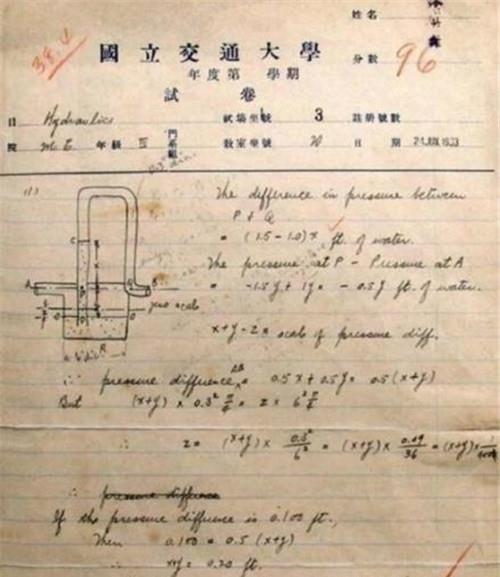 姓名
38.4
國立交通大學
分數 96
年度第 學期
試卷
目 Hydraulics 試場坐號 3 註冊號數
院 M.E. 年級 III 門系組 教室坐號 20 日期 24 JUN 1933
(1) The difference in pressure between
P & Q
= (1.5 - 1.0) x ft. of water.
The pressure at P - Pressure at A
= -1.5y + 1y = -0.5y ft. of water.
zero scale
x+y-z = scale of pressure diff.
∴ pressure difference AB = 0.5x + 0.5y = 0.5 (x+y)
But (x+y) × 0.3² π/4 = z × 6² π/4
∴ z = (x+y) × 0.3²/6² = (x+y) × 0.09/36 = (x+y) × 1/400
∴ pressure difference
If the pressure difference is 0.100 ft.,
Then 0.100 = 0.5 (x+y)
∴ x+y = 0.20 ft.